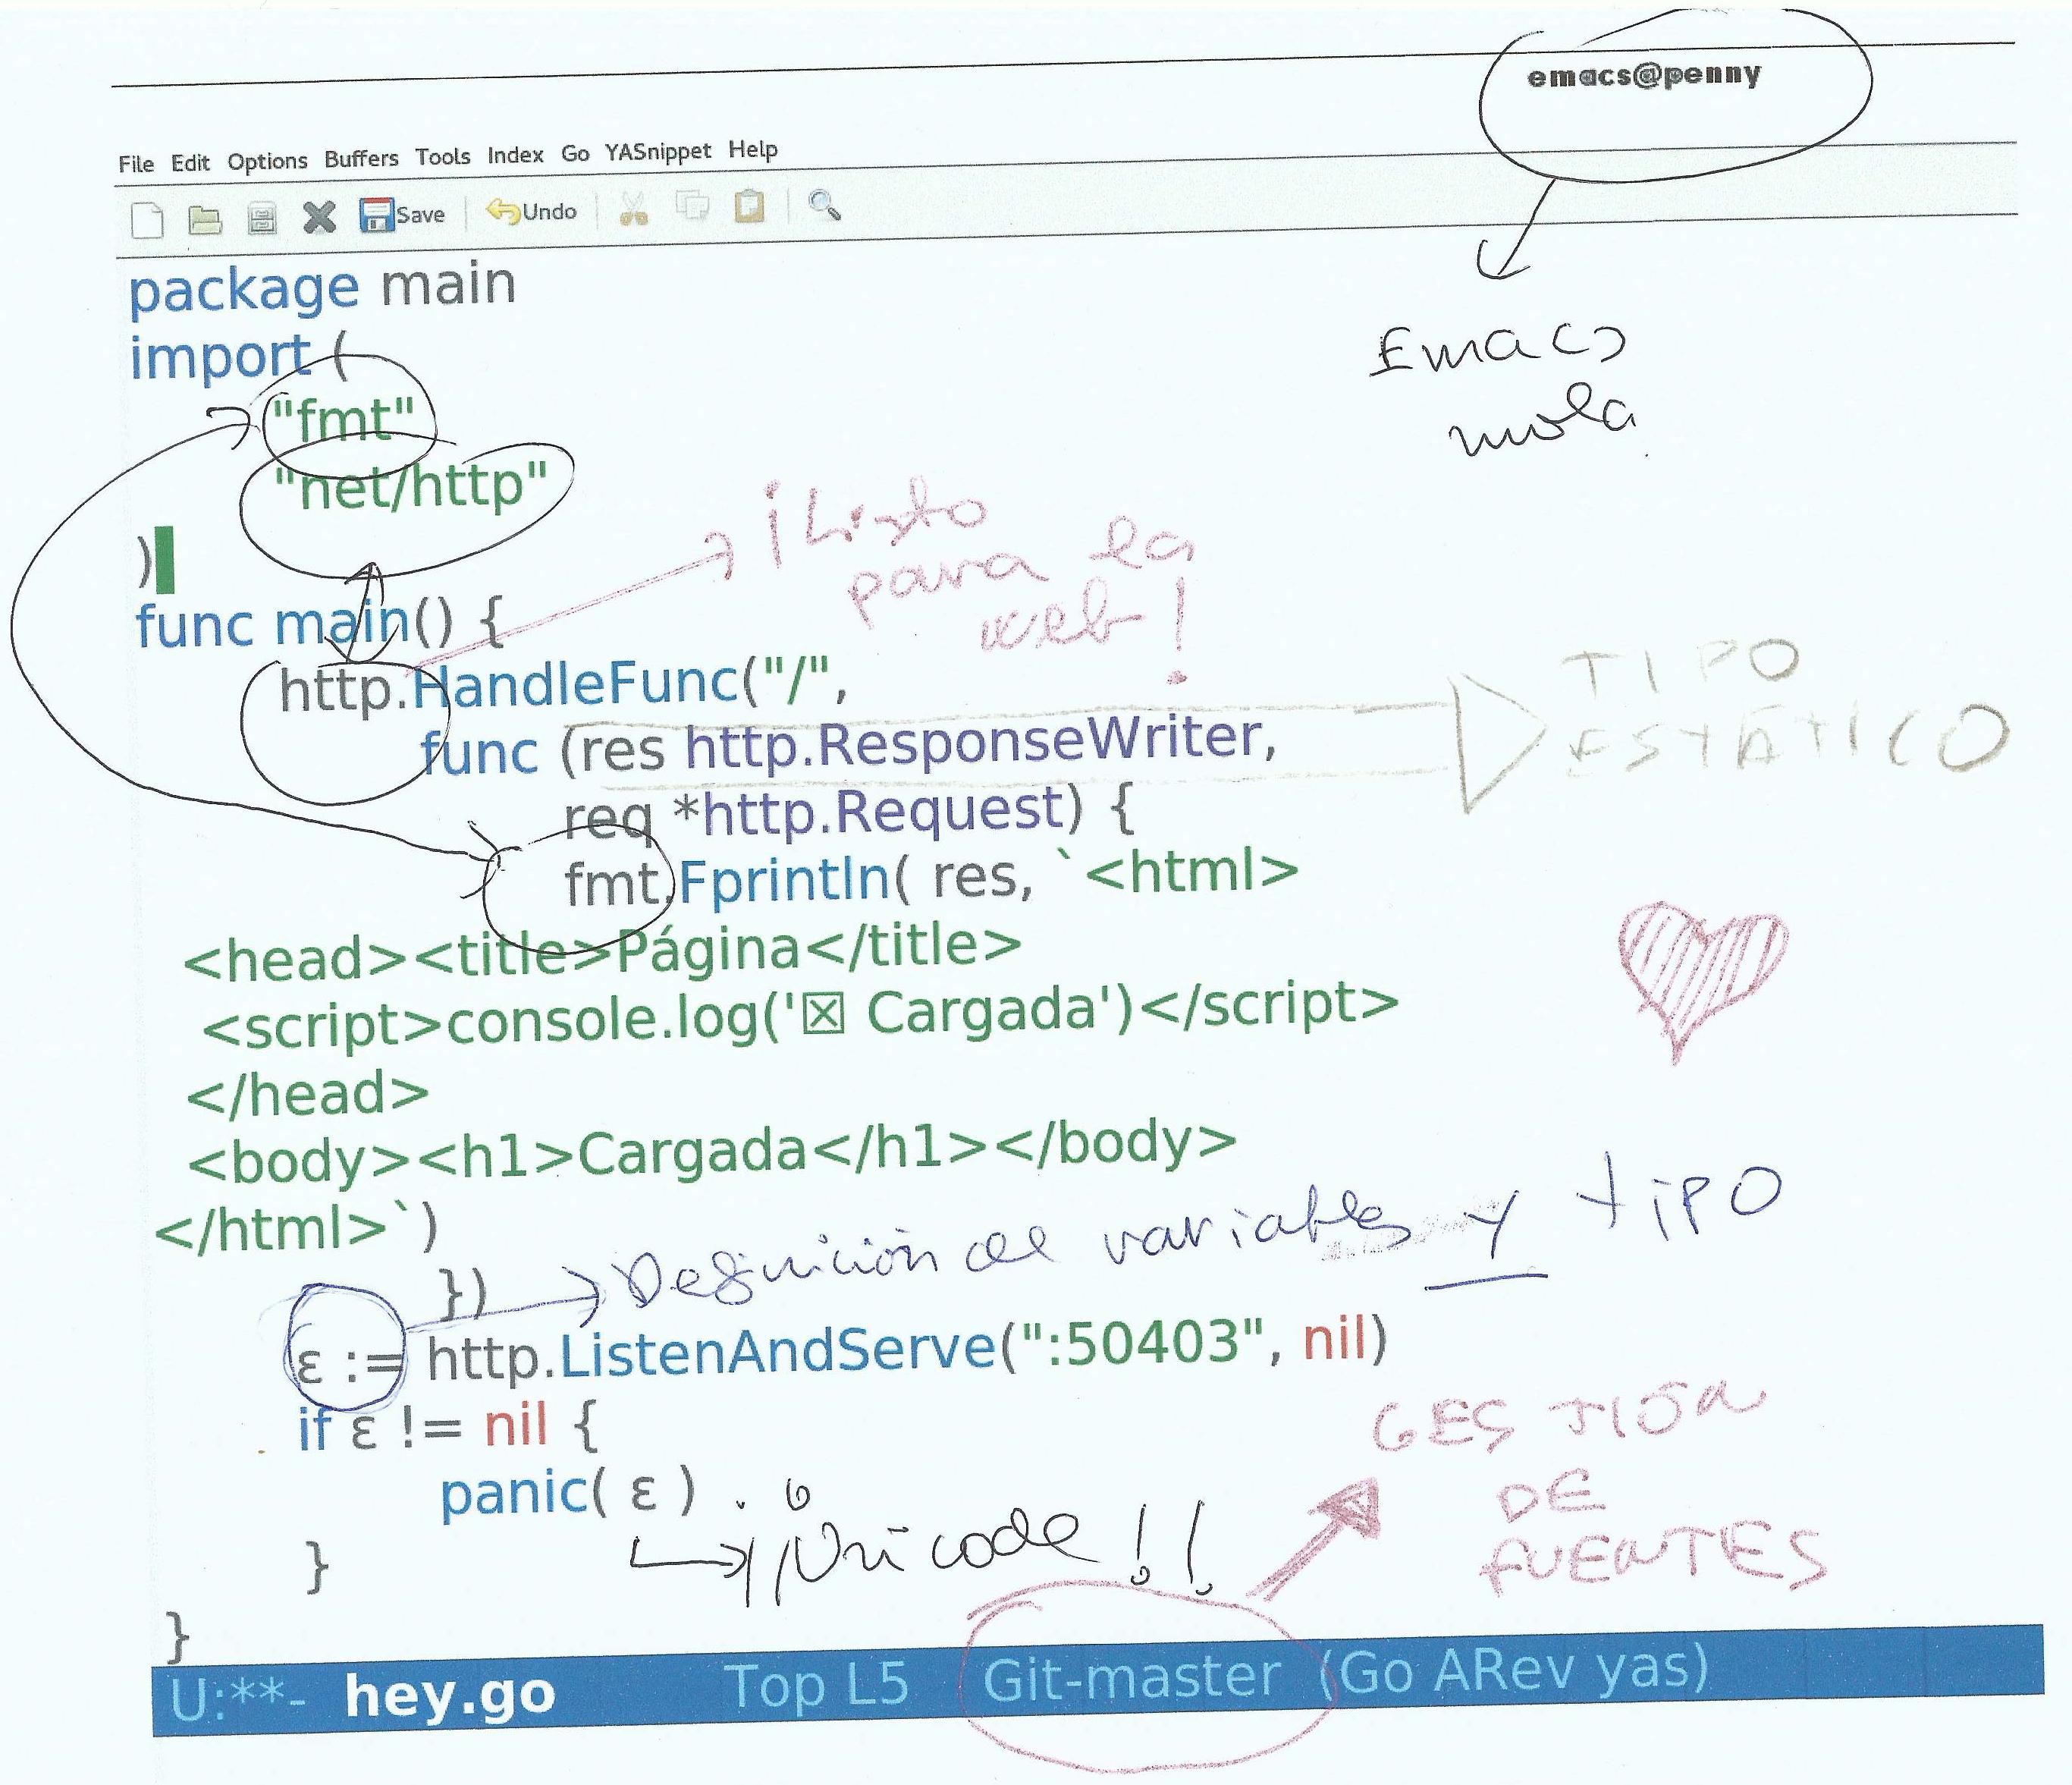 emacs@penny
File Edit Options Buffers Tools Index Go YASnippet Help
Save Undo
package main
import (
"fmt"
"net/http"
)
func main() {
http.HandleFunc("/",
func (res http.ResponseWriter,
req *http.Request) {
fmt.Fprintln( res, `<html>
<head><title>Página</title>
<script>console.log('☒ Cargada')</script>
</head>
<body><h1>Cargada</h1></body>
</html>`)
})
ε := http.ListenAndServe(":50403", nil)
if ε != nil {
panic( ε )
}
}
U:**- hey.go Top L5 Git-master (Go ARev yas)
Emacs
mola
¡Listo
para la
web!
TIPO
ESTÁTICO
Definición de variables y tipo
¡Unicode!!
GESTIÓN
DE
FUENTES